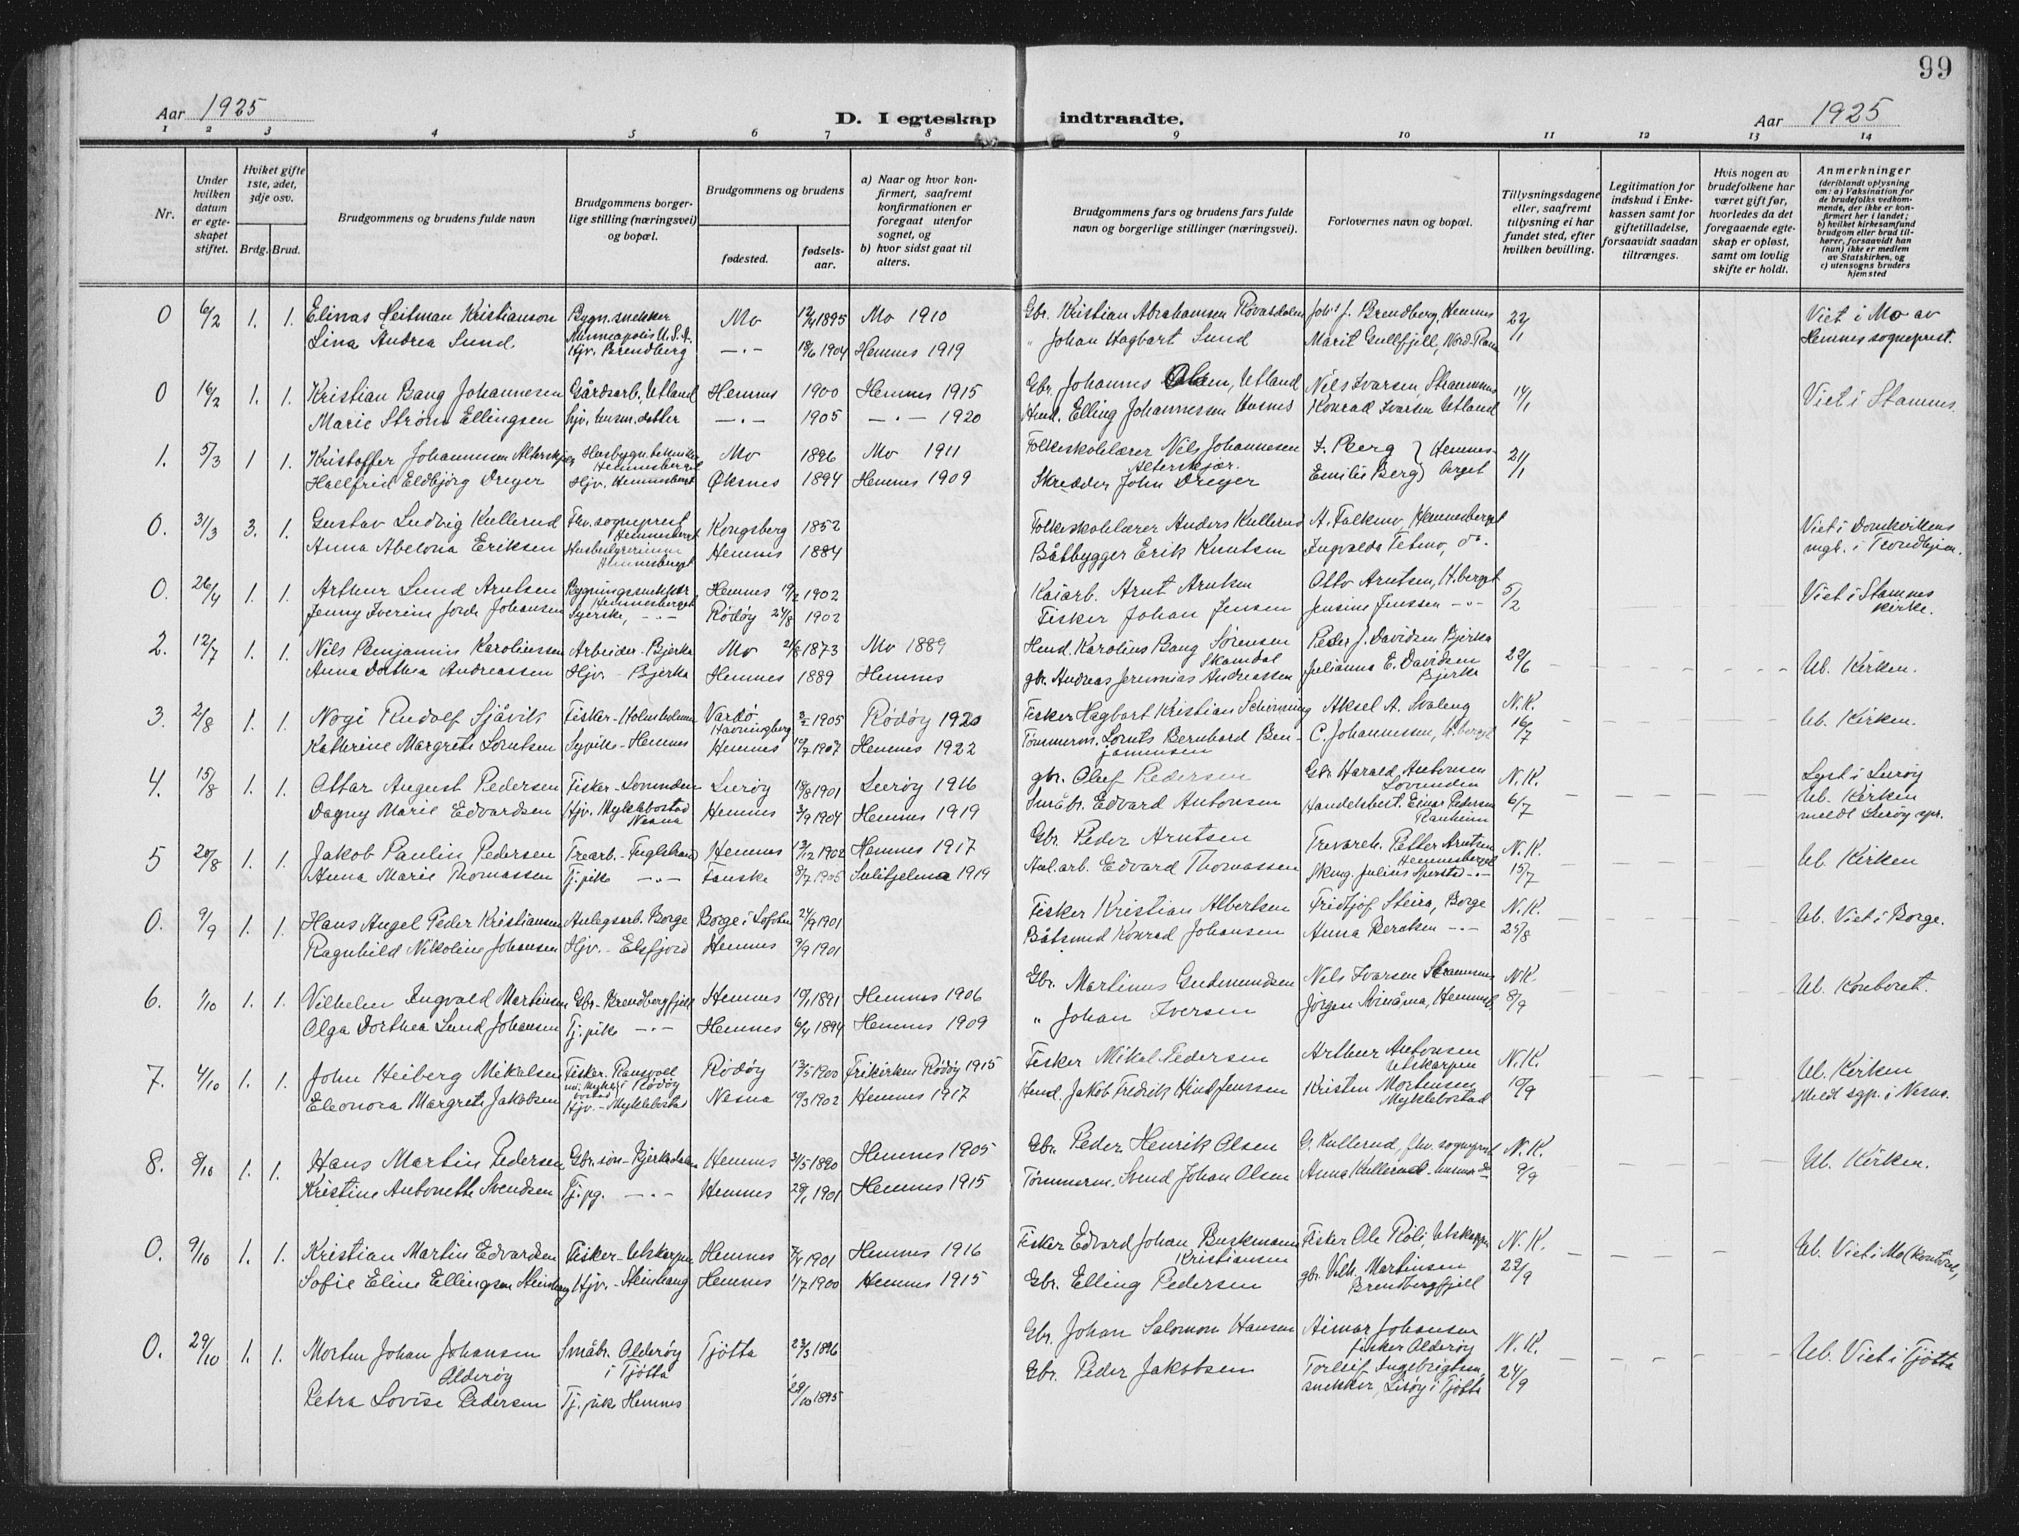 99
Aar 1925
D. I egteskap indtraadte.
Aar 1925
1 2 3 4 5 6 7 8 9 10 11 12 13 14
Nr.
Under hvilken datum er egteskapet stiftet.
Hviket gifte 1ste, 2det, 3dje osv.
Brdg. Brud.
Brudgommens og brudens fulde navn
Brudgommens borgerlige stilling (næringsvei) og bopæl.
Brudgommens og brudens
fødested.
fødselsaar.
a) Naar og hvor konfirmert, saafremt konfirmationen er foregaat utenfor sognet, og
b) hvor sidst gaat til alters.
Brudgommens fars og brudens fars fulde navn og borgerlige stillinger (næringsvei).
Forlovernes navn og bopæl.
Tillysningsdagene eller, saafremt tillysning ei har fundet sted, efter hvilken bevilling.
Legitimation for indskud i Enkekassen samt for giftetilladelse, forsaavidt saadan tiltrænges.
Hvis nogen av brudefolkene har været gift før, hvorledes da det foregaaende egteskap er opløst, samt om lovlig skifte er holdt.
Anmerkninger
(deriblandt oplysning om: a) Vaksination for de brudefolks vedkommende, der ikke er konfirmert her i landet; b) hvilket kirkesamfund brudgom eller brud tilhører, forsaavidt han (hun) ikke er medlem av Statskirken, og c) utensogns bruders hjemsted
0 6/2 1. 1. Elinas Heitman Kristianson Bygn.snekker Minneapolis U.S.A. Mo 12/4 1895 Mo 1910 Gbr. Kristian Abrahamsen Røvasdalen Joh.s J. Brendberg, Hemnes 22/1 Viet i Mo av
Lina Andrea Lund Hjv. Brendberg —.— 18/6 1904 Hemnes 1919 " Johan Hagbart Lund Marit Gullfjell, Nord-Rana Hemnes sogneprest.
0 16/2 1. 1. Kristian Bang Johannesen Gårdsarb. Utland Hemnes 1900 Hemnes 1915 Gbr. Johannes Olsen, Utland Nils Ivarsen, Straumnes 14/1 Viet i Stamnes.
Marie Strøm Ellingsen hjv. husm. datter —.— 1905 —.— 1920 Husd. Elling Johannessen Konrad Ivarsen Utland
1. 5/3 1 1. Kristoffer Johannesen Alterskjær Husbygn.tekniker Hemnesberget Mo 1896 Mo 1911 Folkeskolelærer Nils Johannesen Alterskjær. F. Berg } Hemnesberget 21/1
Hallfrid Eldbjørg Dreyer Hjv. Hemnesberget Øksnes 1894 Hemnes 1909 Skrædder John Dreyer Emilie Berg
0. 31/3 3. 1. Gustav Ludvig Kullerud Fhv. sogneprest Hemnesberget Kongsberg 1852 Folkeskolelærer Anders Kullerud A. Falkmo, Hemnesberget Viet i Domkirkens
Anna Abelona Eriksen Husbestyrerinne Hemnesberget Hemnes 1884 Båtbygger Erik Knutsen Ingvalda Tetmo, do. mgh. i Trondhjem.
0. 26/4 1. 1. Arthur Lund Arntsen Bygningssnekker Hemnesberget Hemnes 19/2 1902 Kaiarb. Arnt Arntsen Otto Arntsen, H.berget 5/2 Viet i Stamnes
Jenny Iverine Jorde Johansen Syerske, —.— Rødøy 24/8 1902 Fisker Johan Jensen Jensine Jenssen —.— kirke.
2. 12/7 1. 1. Nils Benjamin Karoliussen Arbeider - Bjerka Mo 21/8 1873 Mo 1889 Husd. Karolius Bang Sørensen Skamdal Peder J. Davidsen Bjerka 22/6 Ub. Kirken.
Anna Dorthea Andreassen Hjv. - Bjerka Hemnes 1889 Hemnes gbr. Andreas Jeremias Andreassen Julianna E. Davidsen Bjerka
3. 2/8 1. 1. Nogi Rudolf Sjåvik Fisker - Holmholmen Vardø Havningberg 1905 Rødøy 1920 Fisker Hagbart Kristian Schirming Aksel A. Svaleng N.K. Ub. Kirken.
Kathrine Margrete Lorntsen Sypike - Hemnes Hemnes 19/7 1907 Hemnes 1922 Tømmerm. Lornts Bernhard Benjaminsen C. Johannessen, H.berget 16/7
4. 15/8 1. 1. Ottar August Pedersen Fisker - Lovunden Lurøy 19/8 1901 Lurøy 1916 gbr. Oluf Pedersen Gbr. Harald Antonsen Lovunden N.K. Lyst i Lurøy
Dagny Marie Edvardsen Hjv. Myklebostad Nesna Hemnes 3/9 1904 Hemnes 1919 Småbr. Edvard Antonsen Handelsbest. Einar Pedersen Ranheim 6/7 Ub. Kirken meldt Lurøy spr.
5 20/8 1. 1. Jakob Paulin Pedersen Trearb. - Fuglstrand Hemnes 13/12 1902 Hemnes 1917 Gbr. Peder Arntsen Trevareh. Petter Arntsen Hemnesberget N.K. Ub. Kirken
Anna Marie Thomassen Tj.pike —.— Fauske 8/7 1905 Sulitjelma 1919 Anl.arb. Edvard Thomassen Skuesp. Julius Sperstad —.— 15/7
0. 9/9 1. 1. Hans Angel Peder Kristiansen Anlegsarb. Borge Borge i Lofoten 24/9 1901 Fisker Kristian Albertsen Fridtjof Steira, Borge N.K. Ub. Viet i Borge.
Ragnhild Nikoline Johansen Hjv. - Elsfjord Hemnes 9/9 1901 Båtsmd Konrad Johansen Anna Berntsen —.— 25/8
6. 1/10 1. 1. Vilhelm Ingvald Martinsen Gbr. - Brendbergfjell Hemnes 19/1 1891 Hemnes 1906 Gbr. Martinus Gudmundsen Nils Ivarsen Straumnes N.K. Ub. Kontoret.
Olga Dorthea Lund Johansen Tj.pike —.— Hemnes 6/4 1894 Hemnes 1909 " Johan Iversen Jørgen Svinåma, Hemnesb. 8/9
7. 4/10 1. 1. John Heiberg Mikalsen Fisker. Ransvoll nu: Myklebostad i Rødøy Rødøy 13/5 1900 Frikirken Rødøy 1915 Fisker Mikal Pedersen Arthur Antonsen Utskarpen N.K. Ub. Kirken
Eleonora Margrete Jakobsen Hjv. - Myklebostad Nesna 19/3 1902 Hemnes 1917 Husd. Jakob Fredrik Hind Jenssen Kristen Mortensen Myklebostad 19/9 Meld sgp. i Nesna.
8. 8/10 1. 1. Hans Martin Pedersen Gbr.søn - Bjerkadalen Hemnes 31/5 1890 Hemnes 1905 Gbr. Peder Henrik Olsen G. Kullerud, fhv. sogneprest N.K. Ub. Kirken.
Kristine Antonette Svendsen Tj.pg. —.— Hemnes 29/1 1901 Hemnes 1915 Tømmerm. Svend Johan Olsen Anna Kullerud - hustru do 9/9
0. 9/10 1. 1. Kristian Martin Edvardsen Fisker - Utskarpen Hemnes 7/4 1901 Hemnes 1916 Fisker Edvard Johan Buskmann Kristiansen Fisker Ole Røli, Utskarpen N.K. Ub. Viet i Mo (kontoret)
Sofie Eline Ellingsen Steinhaug Hjv. - Steinhaug Hemnes 1/7 1900 Hemnes 1915 Gbr. Elling Pedersen gbr. Vilh. Martinsen Brendbergfjell 22/9
0. 29/10 1. 1. Morten Johan Johansen Alderøy Småbr. Alderøy i Tjøtta Tjøtta 23/3 1896 Gbr. Johan Salomon Hansen Aimar Johansen fisker Alderøy N.K. Ub. Viet i Tjøtta
Petra Lovise Pedersen Tj.pike Hemnes 29/10 1895 Gbr. Peder Jakobsen Torleif Ingebrigtsen snekker, Lisøy i Tjøtta 24/9